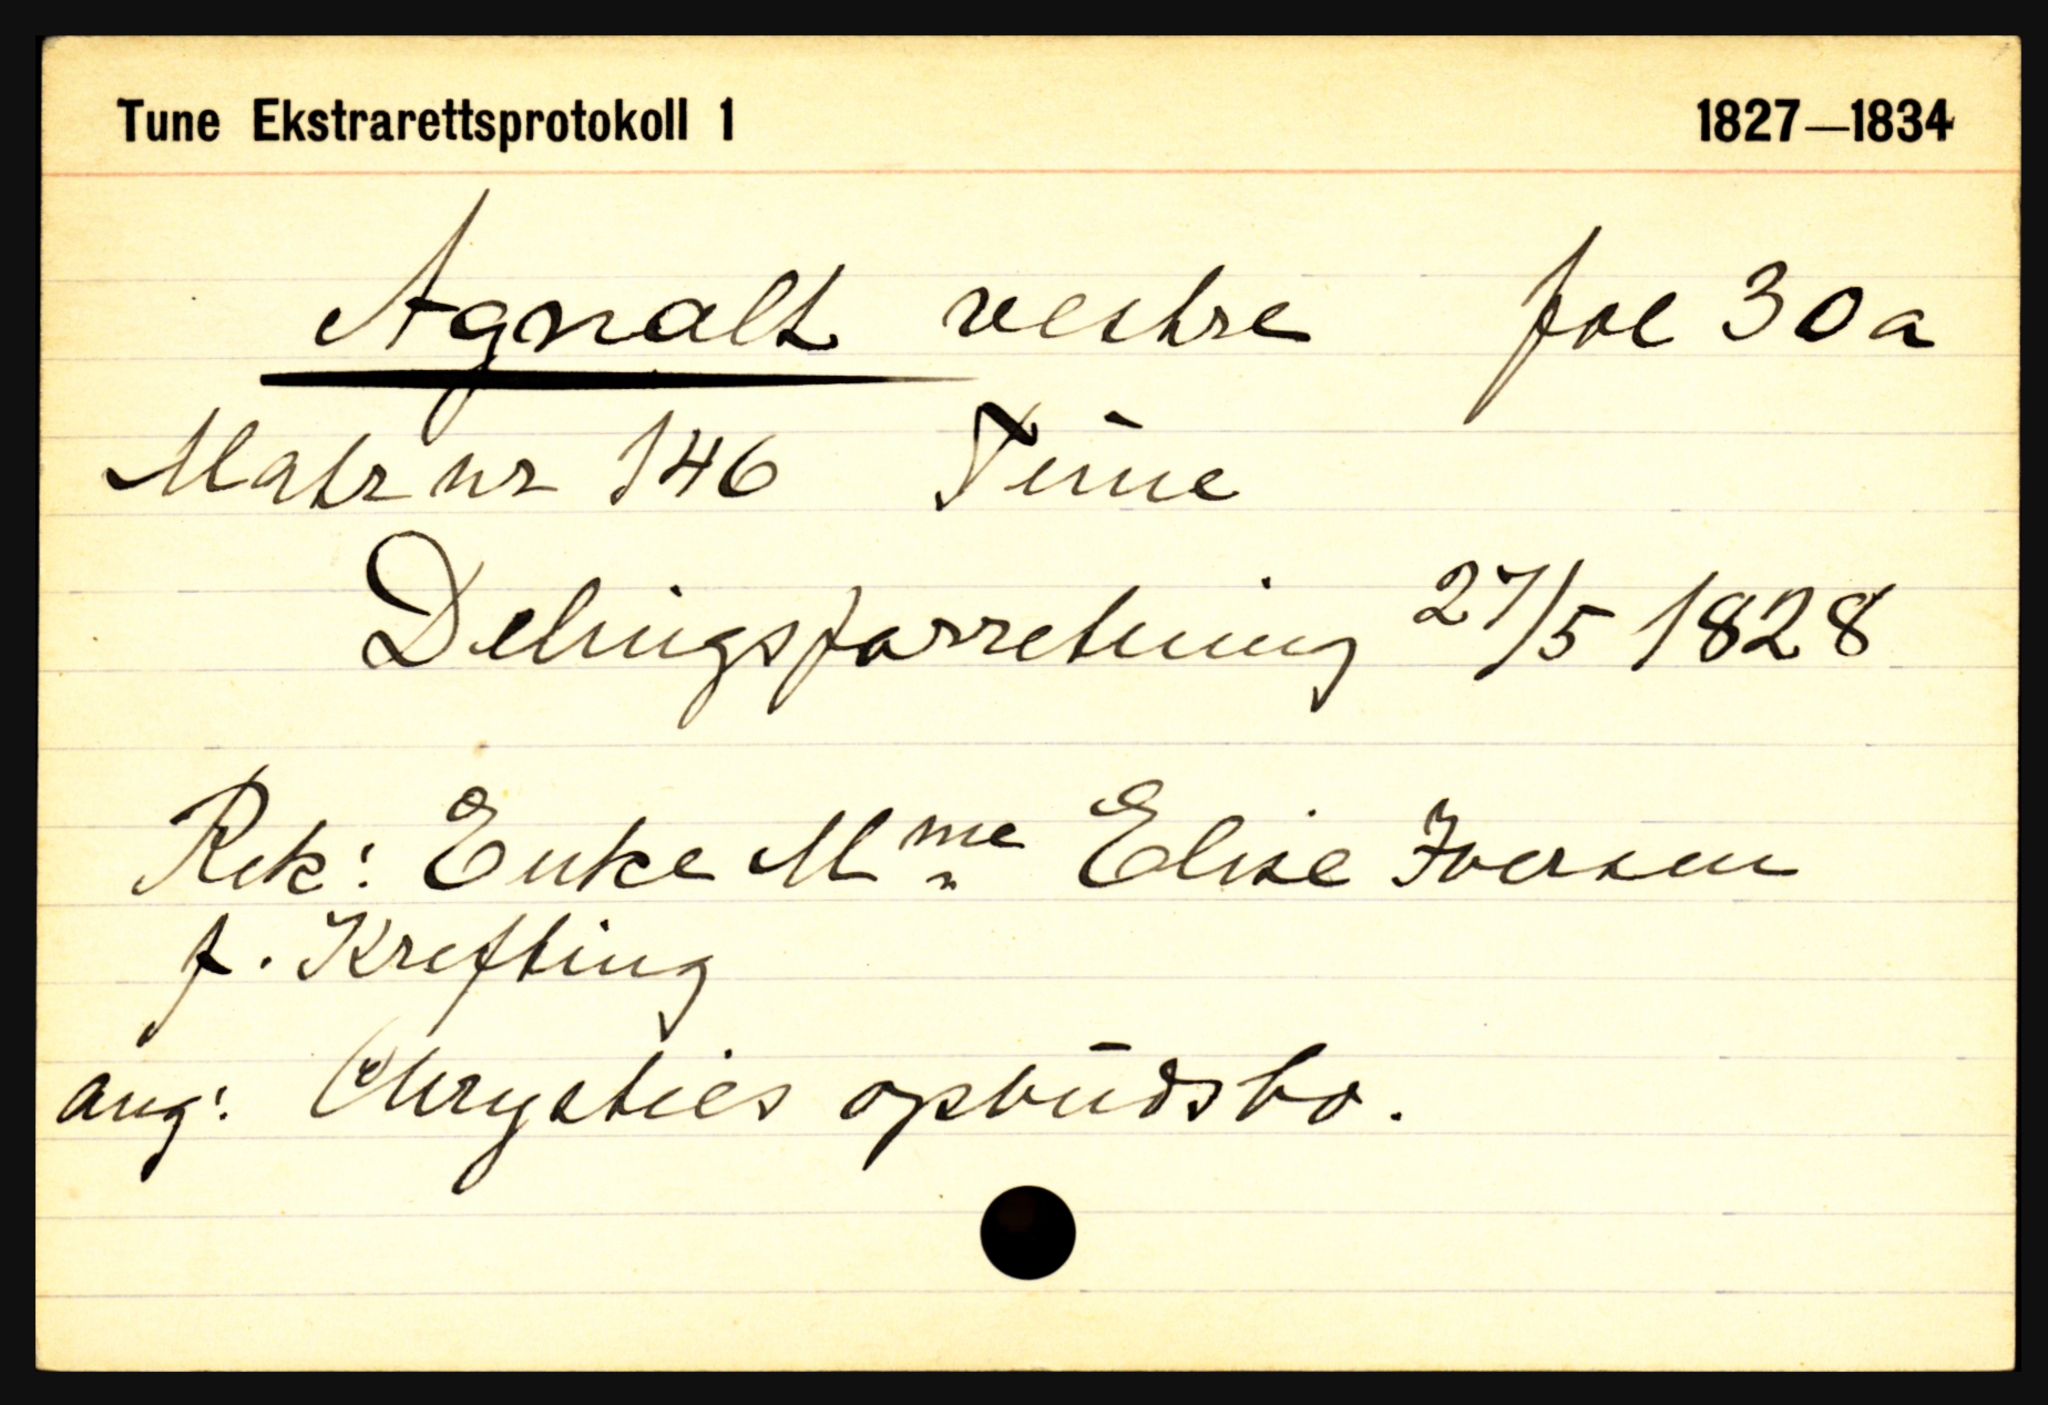 Tune Ekstrarettsprotokoll 1 1827—1834
Agnalt vestre fol 30a
Matr nr 146 Tune
Delingsforretning 27/5 1828
Rek: Enke Mme Elise Iversen
f. Krefting
ang: Chrysties opbudsbo.